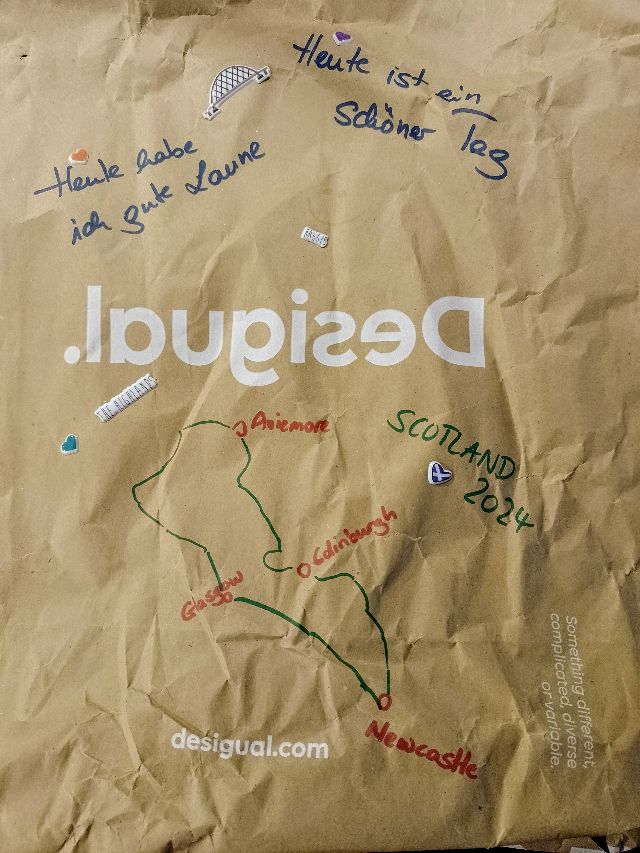 Heute ist ein
schöner Tag
Heute habe
ich gute Laune
Desigual.
THE HIGHLANDS
Aviemore
SCOTLAND
2024
Edinburgh
Glasgow
Newcastle
Something different,
complicated, diverse
or variable.
desigual.com